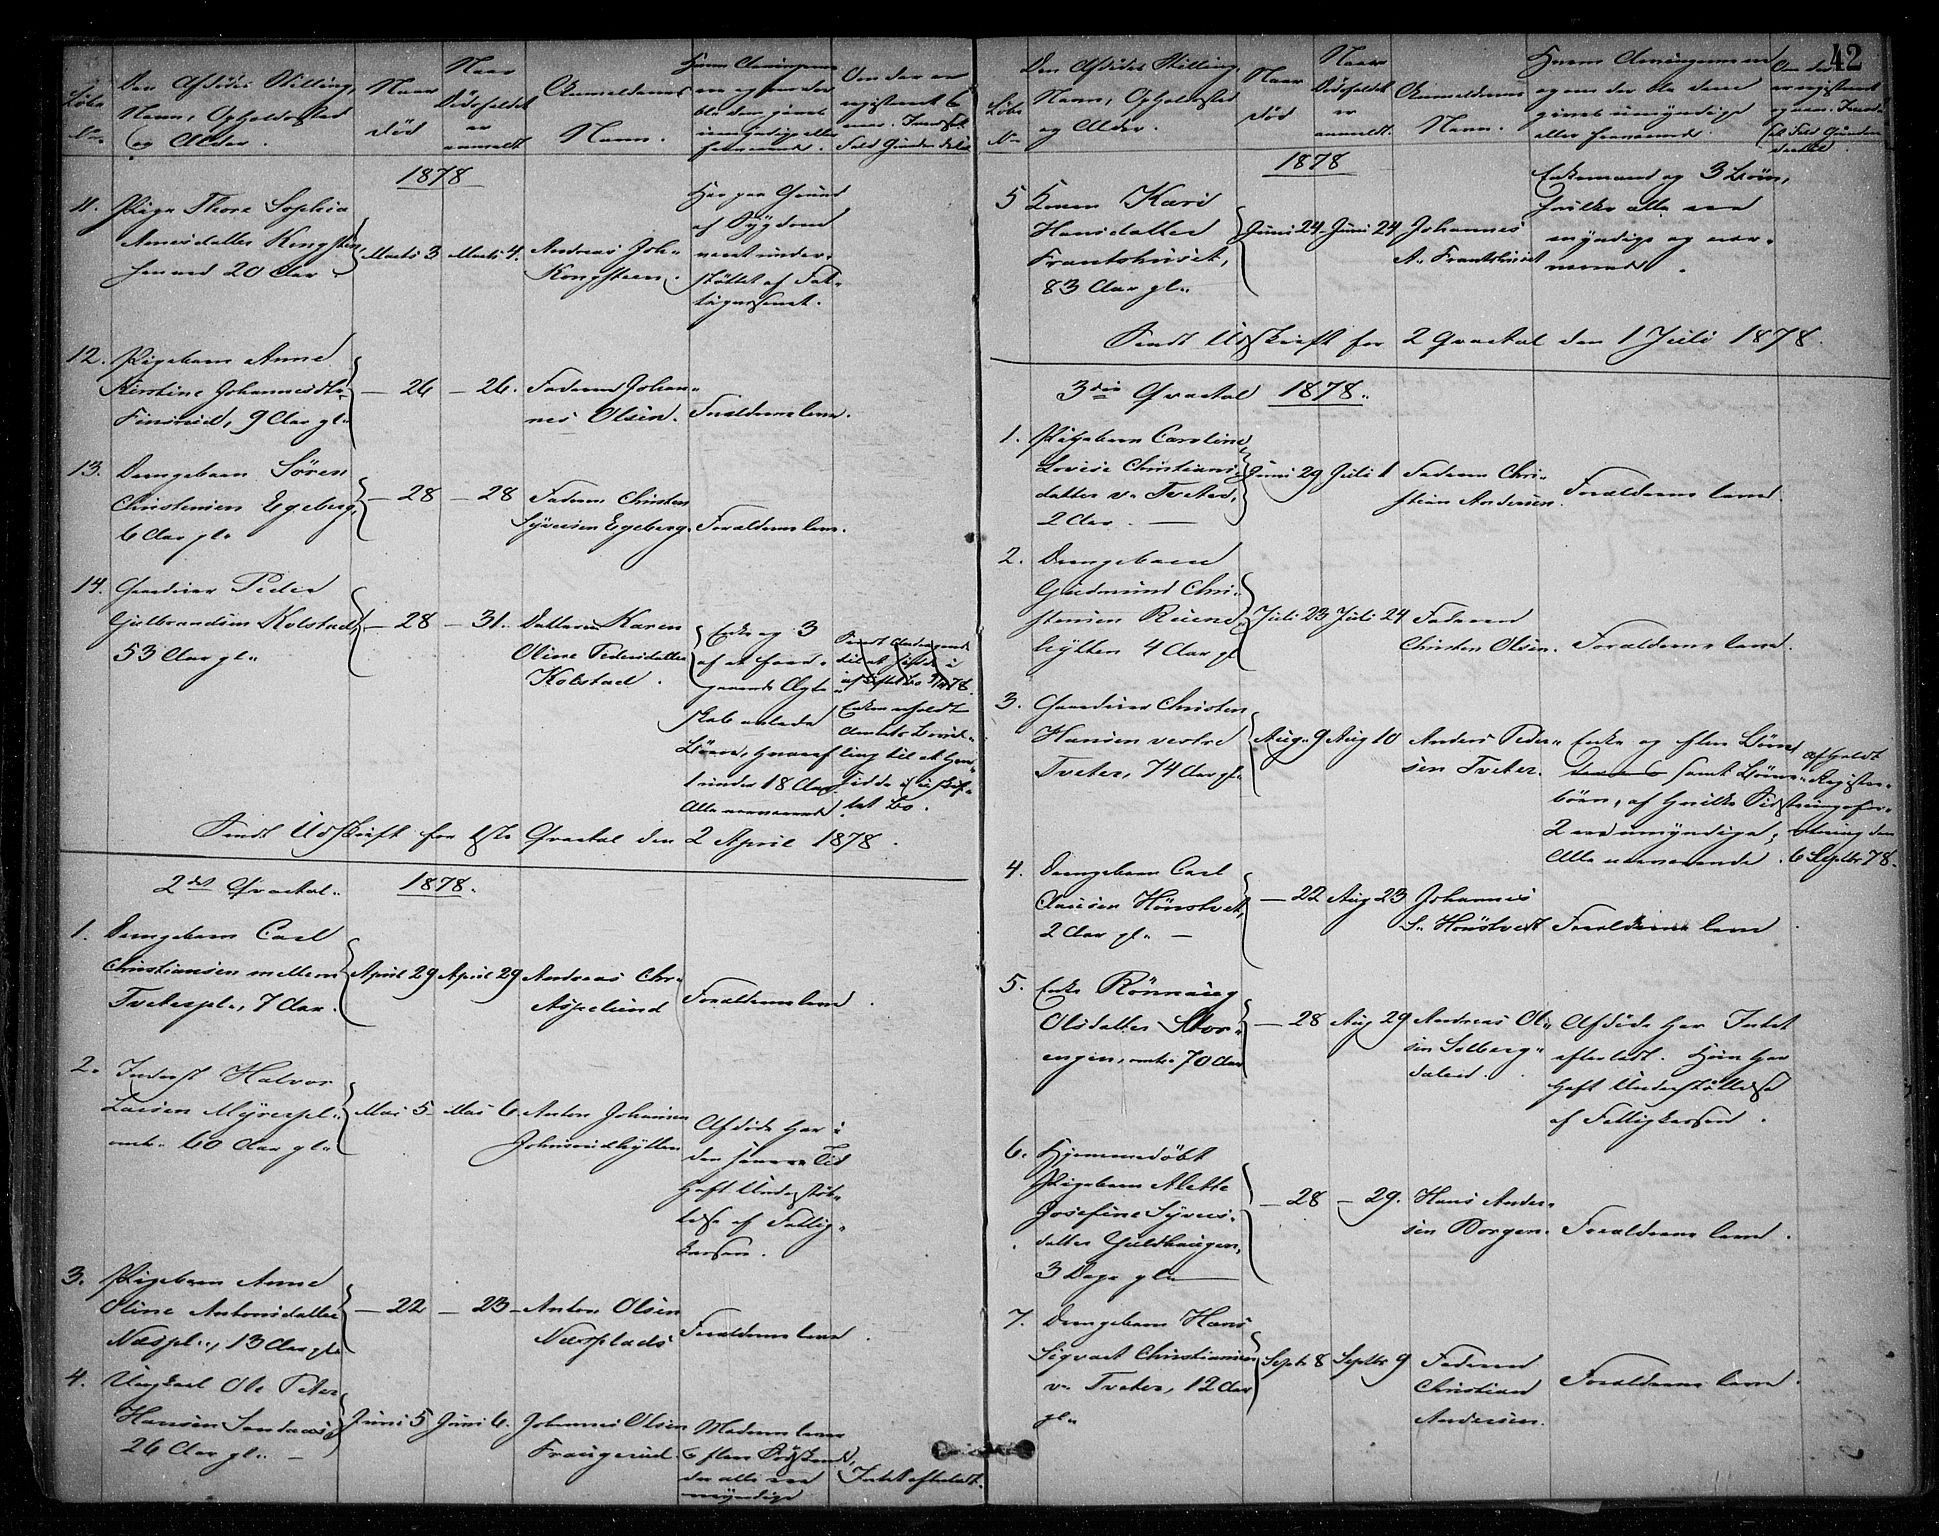 42
Løbe
No
Den Afdødes Stilling,
Navn, Opholdssted
og Alder.
Naar
død
Naar
Dødsfaldet
er
anmeldt
Anmelderens
Navn.
1878
11. Pige Thora Sophia
Arnesdatter Kongsteen
20 Aar
Marts 3 Marts 4.
Andreas Joh.
Kongsteen.
Har paa Grund
af Sygdom
været under-
støttet af Fat-
tigvæsenet.
12. Pigebarn Anne
Kirstine Johannesdtr.
Finsrud, 9 Aar gl.
— 26 — 26.
Faderen Johan-
nes Olsen.
Forældrene leve.
13. Drengebarn Søren
Christensen Egeberg,
6 Aar gl.
— 28 — 28
Faderen Christen
Syversen Egeberg.
Forældrene leve.
14. Gaardeier Peder
Gulbrandsen Kolstad
53 Aar gl.
— 28 — 31.
Datteren Karen
Oline Pedersdatter
Kolstad.
Enke og 3
af et fore-
gaaende Ægte-
skab avlede
Børn, hvoraf
1 under 18 Aar.
Alle nærværende.
Enken erholdt
Bevil-
ling til at hen-
sidde i uskif-
tet Bo.
Sendt Udskrift for 1ste Qvartal den 2 April 1878.
2det Qvartal. 1878.
1. Drengebarn Carl
Christiansen mellem
Tveterpl., 7 Aar.
April 29 April 29
Andreas Chr.
Aspelund
Forældrene leve.
2. Inderst Halvor
Larsen Myrerpl.
omtr. 60 Aar gl.
Mai 5 Mai 6.
Anton Johansen
Johnsrudhytten
Afdøde har i
den senere Tid
haft Understøt-
telse af Fattig-
kassen.
3. Pigebarn Anne
Oline Antonsdatter
Næspl., 13 Aar gl.
— 22 — 23
Anton Olsen
Næsplads
Forældrene leve.
4. Ungkarl Ole Peter
Hansen Sandaas
26 Aar gl.
Juni 5 Juni 6.
Johannes Olsen
Fraugerud.
Moderen lever
6 flere Sødskende,
der alle ere
myndige
Intet efterladt.
Løbe
No
Den Afdødes Stilling,
Navn, Opholdssted
og Alder.
Naar
død
Naar
Dødsfaldet
er
anmeldt.
Anmelderens
Navn.
Hvem Arvingerne er
og om der bla dem
gives umyndige
eller fraværende.
1878
5 Konen Kari
Hansdatter
Frantshuset,
83 Aar gl.
Juni 24 Juni 24
Johannes
A. Frantshuset
Enkemand og 3 Børn,
hvilke alle ere
myndige og nær-
værende.
Sendt Udskrift for 2 Qvartal den 1 Juli 1878.
3die Qvartal 1878.
1. Pigebarn Caroline
Lovise Christians-
datter v. Tveter,
2 Aar. —
Juni 29 Juli 1
Faderen Chri-
stian Andersen.
Forældrene leve.
2. Drengebarn
Gudmund Chri-
stensen Ruene-
hytten 4 Aar gl.
Juli 23 Juli 24
Faderen
Christen Olsen.
Forældrene leve.
3. Gaardeier Christen
Hansen vestre
Tveter, 74 Aar gl.
Aug. 9 Aug 10
Anders Peder-
sen Tveter.
Enke og flere Børn
samt Børne-
børn, af hvilke Sidste
2 ere umyndige;
Alle nærværende.
Afholdt
Registre-
ringsfor-
retning den
6 Septbr 78.
4. Drengebarn Carl
Clausen Hønstvet,
2 Aar gl. —
— 22 Aug 23
Johannes
S. Hønstvedt
Forældrene leve.
5. Enke Rønnaug
Olsdatter Stor-
engen, omtr. 70 Aar
— 28 Aug 29
Andreas Ol-
sen Solberg-
dalen.
Afdøde har Intet
efterladt. Hun har
haft Understøttelse
af Fattigkassen.
6. Hjemmedøbt
Pigebarn Alette
Josefine Syvers-
datter Guldhaugen,
3 Dage gl.
— 28 — 29.
Hans Ander-
sen Borgen.
Forældrene leve.
7. Drengebarn Hans
Sigvart Christiansen
v. Tveter, 12 Aar
gl.
Septr 8 Septbr 9
Faderen
Christian
Andersen.
Forældrene leve.